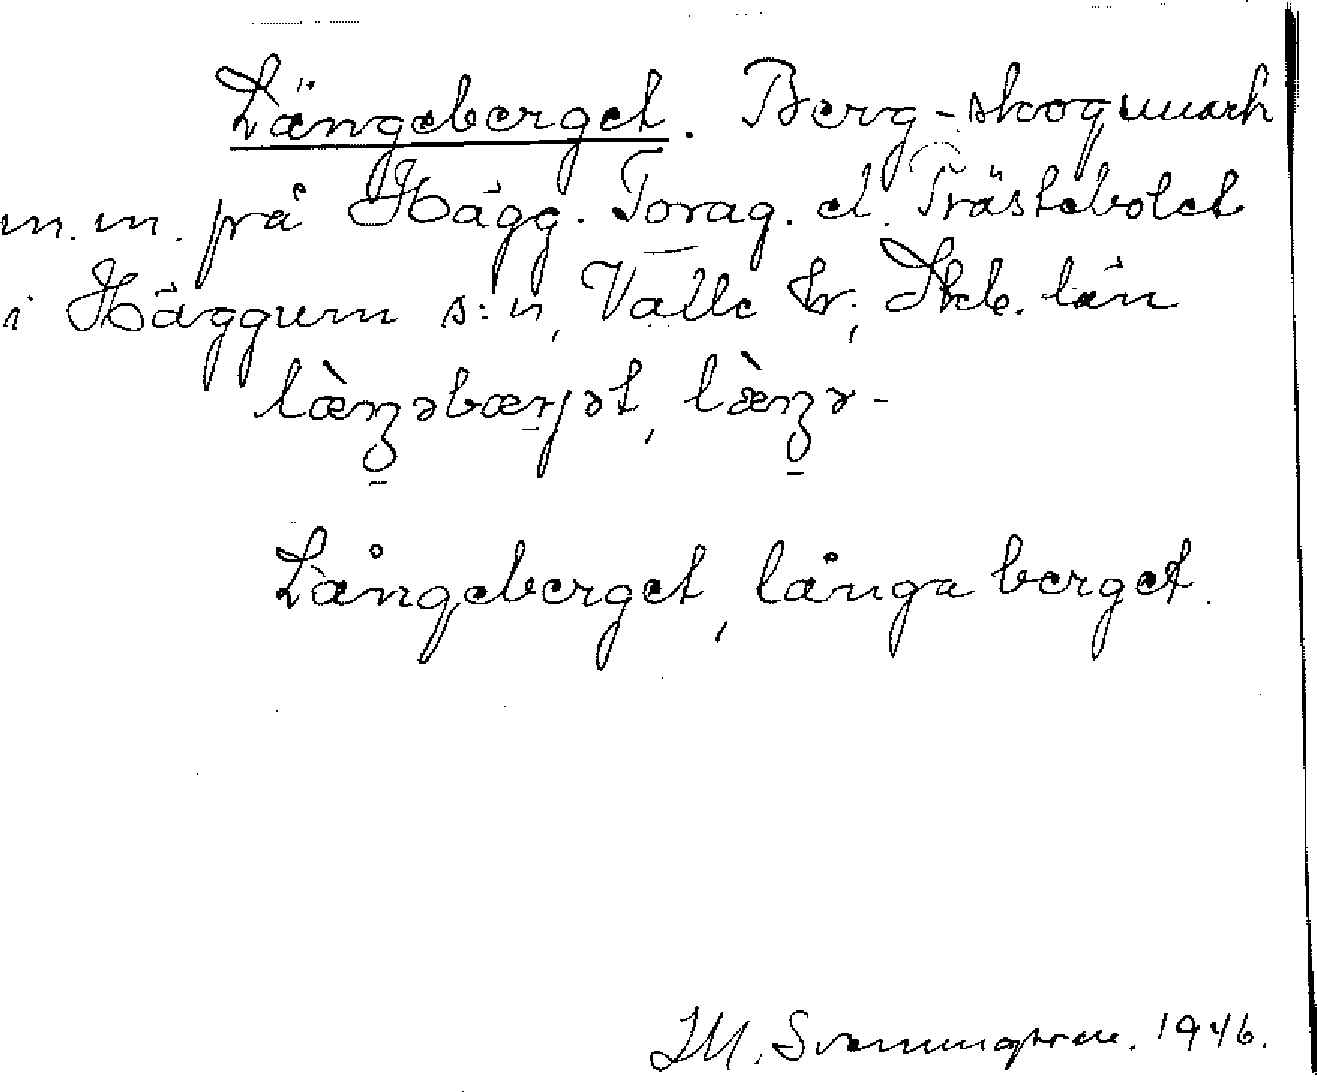 Längeberget. Berg-skoogmark
m. m. på Hägg. Torag. el. Prästebolet
i Häggum s:n, Valle hr; Skb. län
læ̀ŋəbærjət, læ̀ŋə-
Långeberget, långa berget.
1946.